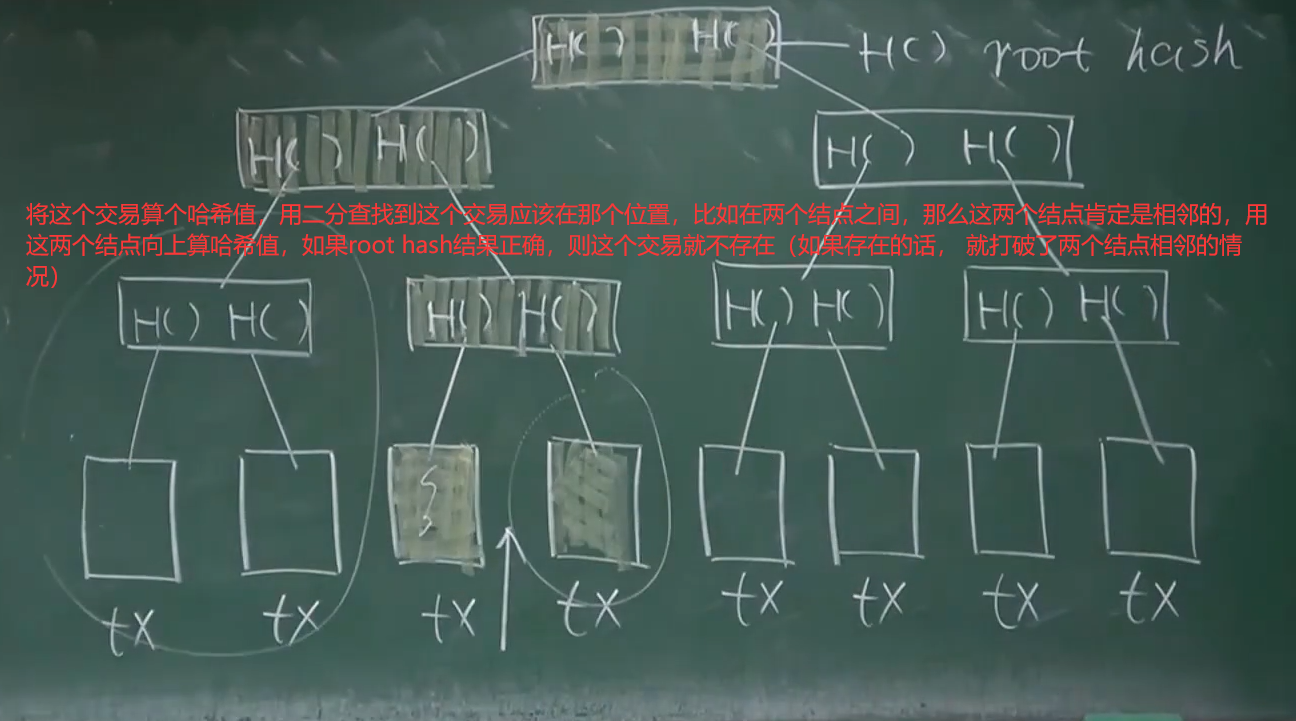 H( ) H( ) H( ) root hash
H( ) H( ) H( ) H( )
将这个交易算个哈希值，用二分查找到这个交易应该在那个位置，比如在两个结点之间，那么这两个结点肯定是相邻的，用
这两个结点向上算哈希值，如果root hash结果正确，则这个交易就不存在（如果存在的话， 就打破了两个结点相邻的情
况）
H( ) H( ) H( ) H( ) H( ) H( ) H( ) H( )
tx tx tx tx tx tx tx tx